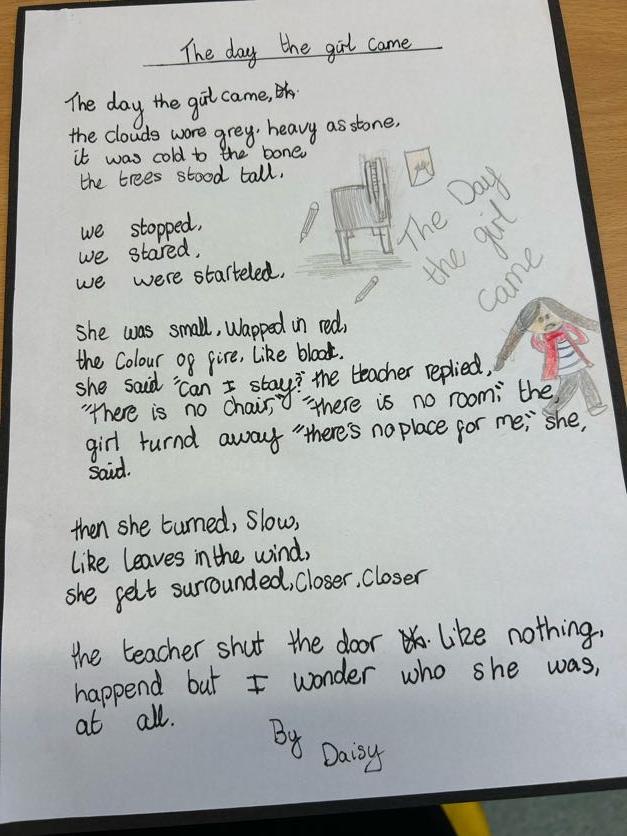 The day the girl came
The day the girl came,
the clouds wore grey, heavy as stone,
it was cold to the bone,
the trees stood tall.
we stopped,
we stared,
we were starteled.
The Day
the girl
came
She was small, Wapped in red,
the Colour of fire, Like bloot.
she said "Can I stay?" the teacher replied,
"There is no Chair," "there is no room," the
girl turnd away "there's no place for me," she,
said.
then she turned, Slow,
Like Leaves in the wind,
she felt surrounded, Closer, Closer
the teacher shut the door Like nothing,
happend but I wonder who she was,
at all.
By
Daisy